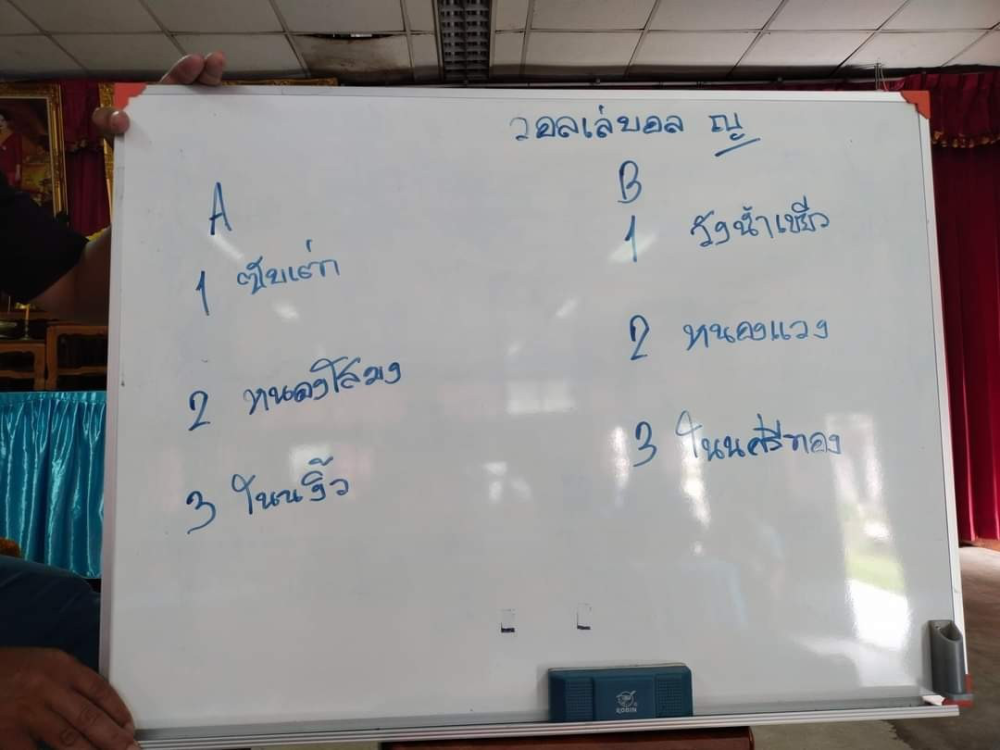 วอลเล่บอล ญ
A
1 ซับเต่า
2 หนองโสมง
3 โนนงิ้ว
B
1 วังน้ำเขียว
2 หนองแวง
3 โนนศรีทอง
ROBIN